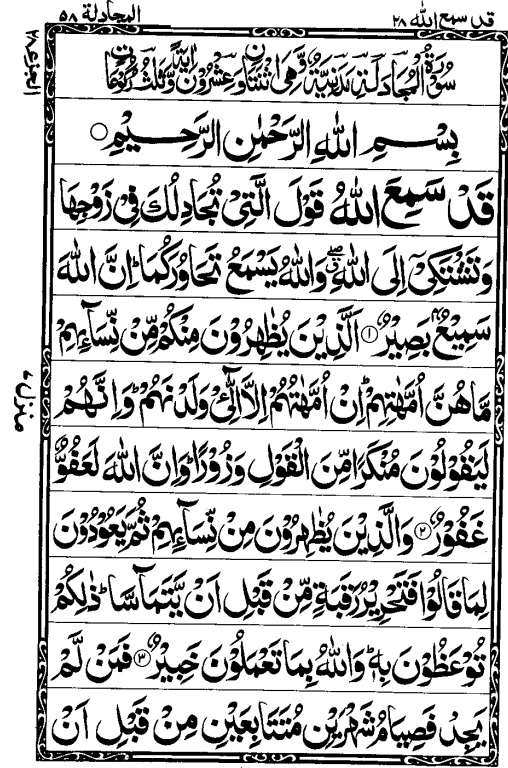 قد سمع الله ٢٨
المجادلة ٥٨
الجزء ٢٨
سُوْرَةُ الْمُجَادَلَةِ مَدَنِيَّةٌ وَّهِيَ اثْنَتَانِ وَعِشْرُوْنَ اٰيَةً وَّثَلٰثُ رُكُوْعَاتٍ
بِسْمِ اللّٰهِ الرَّحْمٰنِ الرَّحِيْمِ ○
قَدْ سَمِعَ اللّٰهُ قَوْلَ الَّتِیْ تُجَادِلُكَ فِیْ زَوْجِهَا
وَتَشْتَكِیْۤ اِلَی اللّٰهِ ۖ وَاللّٰهُ یَسْمَعُ تَحَاوُرَكُمَا ؕ اِنَّ اللّٰهَ
سَمِیْعٌۢ بَصِیْرٌ ﴿۱﴾ اَلَّذِیْنَ یُظٰهِرُوْنَ مِنْكُمْ مِّنْ نِّسَآىِٕهِمْ
مَّا هُنَّ اُمَّهٰتِهِمْ ؕ اِنْ اُمَّهٰتُهُمْ اِلَّا الّٰٓـِٔیْ وَلَدْنَهُمْ ؕ وَاِنَّهُمْ
لَیَقُوْلُوْنَ مُنْكَرًا مِّنَ الْقَوْلِ وَزُوْرًا ؕ وَاِنَّ اللّٰهَ لَعَفُوٌّ
غَفُوْرٌ ﴿۲﴾ وَالَّذِیْنَ یُظٰهِرُوْنَ مِنْ نِّسَآىِٕهِمْ ثُمَّ یَعُوْدُوْنَ
لِمَا قَالُوْا فَتَحْرِیْرُ رَقَبَةٍ مِّنْ قَبْلِ اَنْ یَّتَمَآسَّا ؕ ذٰلِكُمْ
تُوْعَظُوْنَ بِهٖ ؕ وَاللّٰهُ بِمَا تَعْمَلُوْنَ خَبِیْرٌ ﴿۳﴾ فَمَنْ لَّمْ
یَجِدْ فَصِیَامُ شَهْرَیْنِ مُتَتَابِعَیْنِ مِنْ قَبْلِ اَنْ
منزل ٧